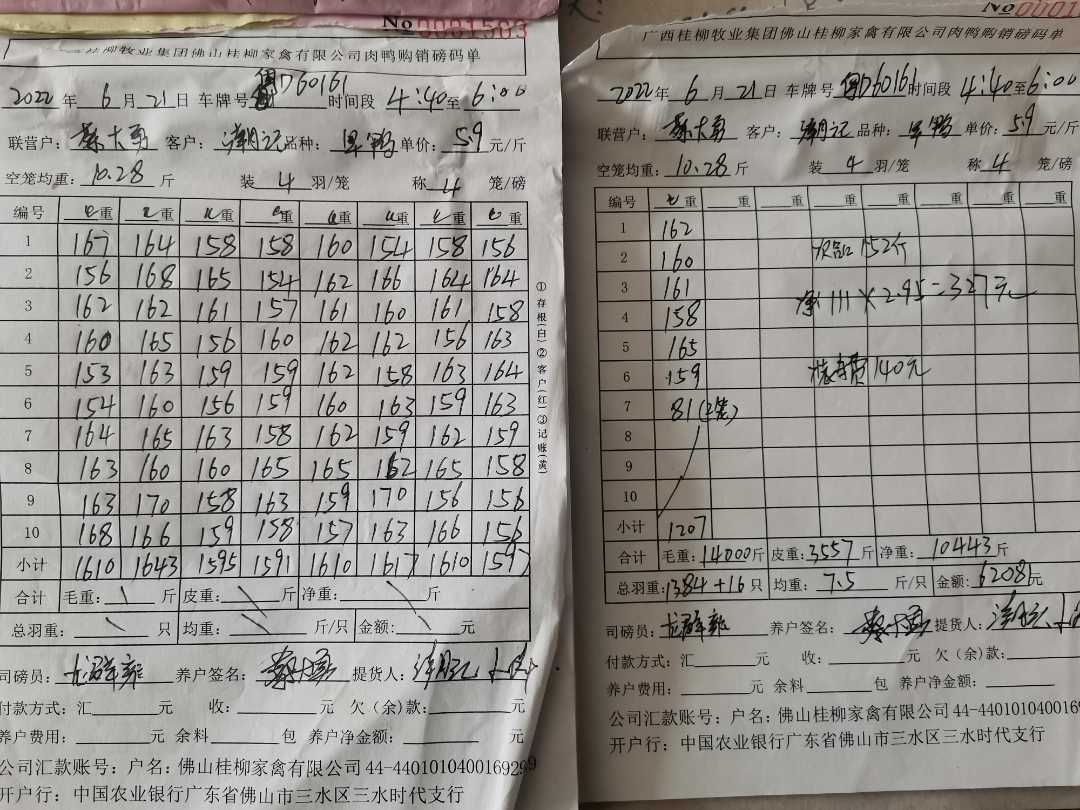 No 0001503
广西桂柳牧业集团佛山桂柳家禽有限公司肉鸭购销磅码单
2022年6月21日 车牌号 粤D60161 时间段 4:40至6:00
联营户: 蔡大勇 客户: 潮记 品种: 旱鸭 单价: 5.9 元/斤
空笼均重: 10.28 斤 装 4 羽/笼 称 4 笼/磅
编号 毛重 毛重 毛重 毛重 毛重 毛重 毛重 毛重
1 167 164 158 158 160 154 158 156
2 156 168 165 154 162 166 164 164
3 162 162 161 157 161 160 161 158
4 160 165 156 160 162 162 156 163
5 153 163 159 159 162 158 163 164
6 154 160 156 159 160 163 159 163
7 164 165 163 158 162 159 162 159
8 163 160 160 165 165 162 165 158
9 163 170 158 163 159 170 156 156
10 168 166 159 158 157 163 166 156
小计 1610 1643 1595 1591 1610 1617 1610 1597
合计 毛重: 斤 皮重: 斤 净重: 斤
总羽重: 只 均重: 斤/只 金额: 元
司磅员: 养户签名: 蔡大勇 提货人:
付款方式: 汇 元 收: 元 欠(余)款:
养户费用: 元 余料 包 养户净金额: 元
公司汇款账号: 户名: 佛山桂柳家禽有限公司 44-4401010400169299
开户行: 中国农业银行广东省佛山市三水区三水时代支行
①存根(白)②客户(红)③记账(黄)
No 0001
广西桂柳牧业集团佛山桂柳家禽有限公司肉鸭购销磅码单
2022年6月21日 车牌号 粤D60161 时间段 4:40至6:00
联营户: 蔡大勇 客户: 潮记 品种: 旱鸭 单价: 5.9 元/斤
空笼均重: 10.28 斤 装 4 羽/笼 称 4 笼/磅
编号 毛重 重 重 重 重 重 重 重
1 162
2 160 152斤
3 161 111×2.95=327元
4 158
5 165
6 159 装车费140元
7 81(2笼)
8
9
10
小计 1207
合计 毛重: 14000斤 皮重: 3557斤 净重: 10443斤
总羽重: 1384+16只 均重: 7.5 斤/只 金额: 62081元
司磅员: 养户签名: 蔡大勇 提货人:
付款方式: 汇 元 收: 元 欠(余)款:
养户费用: 元 余料 包 养户净金额:
公司汇款账号: 户名: 佛山桂柳家禽有限公司 44-4401010400169
开户行: 中国农业银行广东省佛山市三水区三水时代支行